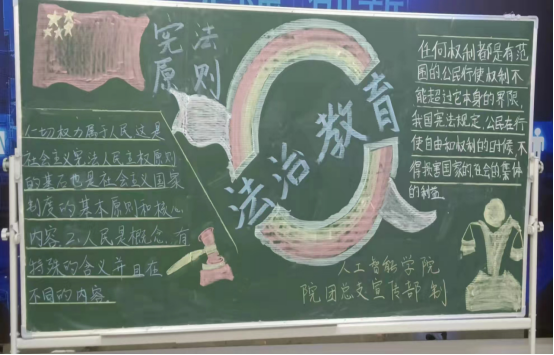 宪法
原则
1.一切权力属于人民,这是
社会主义宪法人民主权原则
的基石也是社会主义国家
制度的基本原则和核心
内容.2.人民是概念.有
特殊的含义并且在
不同的内容.
法治教育
任何权利都是有范
围的公民行使权利不
能超过它本身的界限,
我国宪法规定,公民在行
使自由和权利的时候不
得损害国家的,社会的集体
的利益
人工智能学院
院团总支宣传部 制